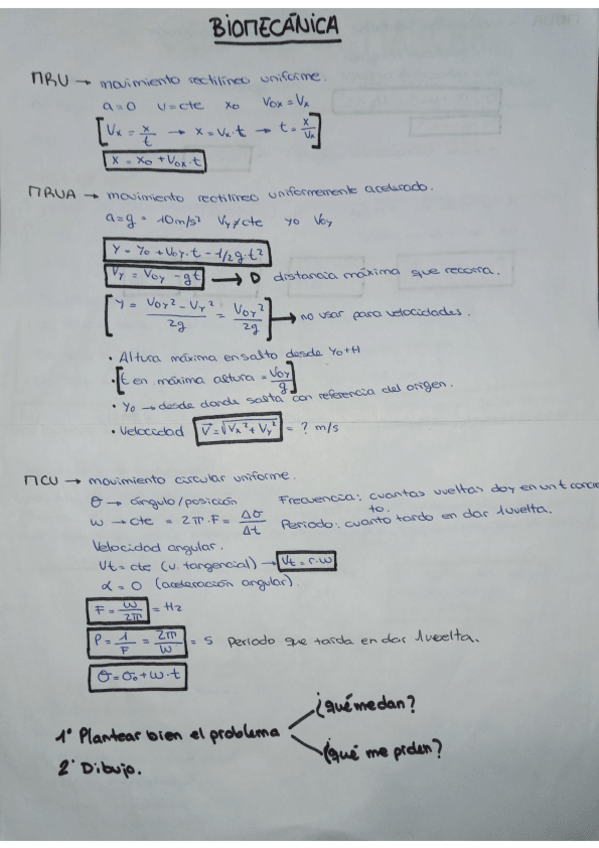 BIOMECÁNICA
MRU → movimiento rectilíneo uniforme.
a=0 v=cte x0 Vox=Vx
[Vx = x/t → x=Vx.t → t= x/Vx]
x = x0 + Vox.t
MRUA → movimiento rectilíneo uniformemente acelerado.
a=g = 10m/s² Vy≠cte yo Voy
Y = Yo + Voy.t - 1/2 g.t²
Vy = Voy - gt → D distancia máxima que recorra.
[Y = Voy² - Vy² / 2g = Voy² / 2g] → no usar para velocidades.
• Altura máxima en salto desde Yo+H
• [t en máxima altura = Voy/g]
• Yo → desde donde salta con referencia del origen.
• Velocidad V=√Vx²+Vy² = ? m/s
MCU → movimiento circular uniforme.
θ → ángulo/posición Frecuencia: cuantas vueltas doy en un t concre
to.
ω → cte = 2π.F = Δσ/Δt Periodo: cuanto tardo en dar 1 vuelta.
Velocidad angular.
Vt = cte (v. tangencial) → Vt = r.ω
α = 0 (aceleración angular).
F = ω/2π = Hz
P = 1/F = 2π/ω = s Periodo que tarda en dar 1 vuelta.
σ = σo + ω.t
¿qué me dan?
1º Plantear bien el problema
¿qué me piden?
2º Dibujo.